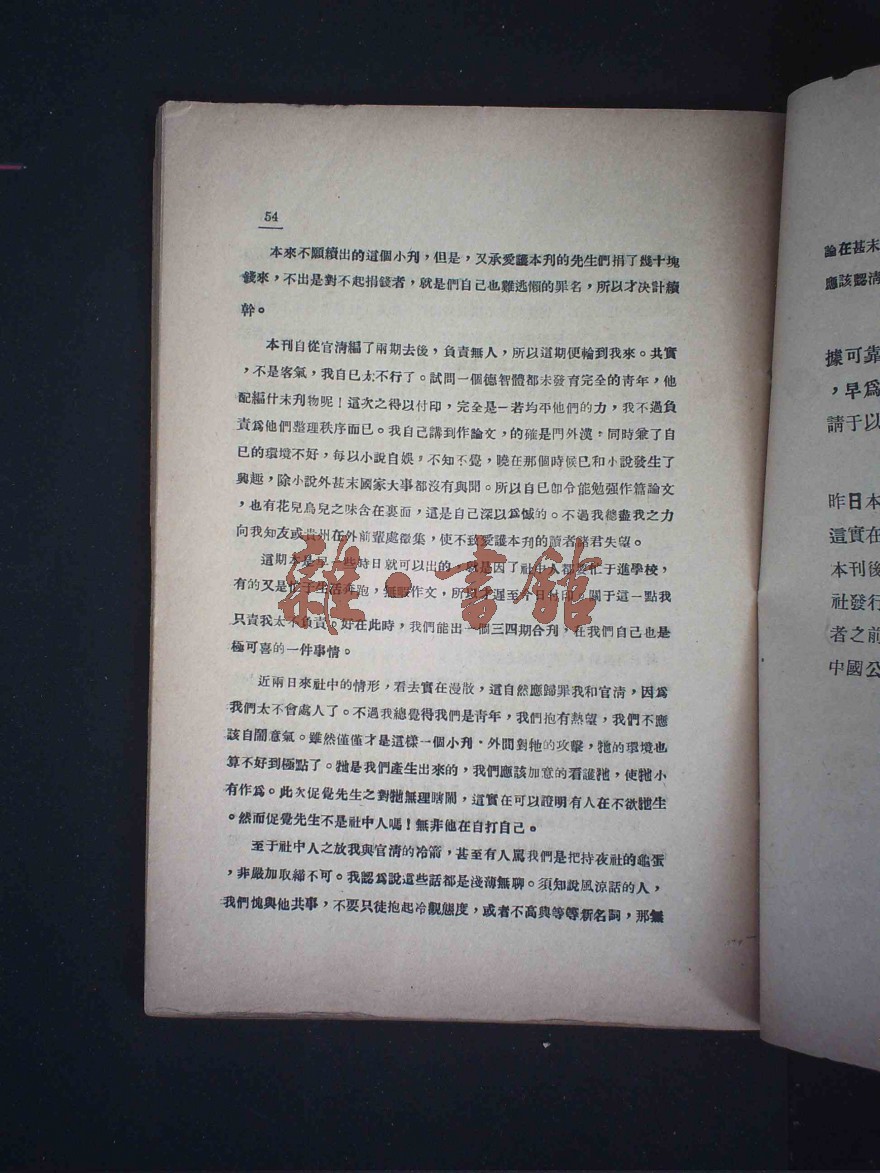 54
本來不願續出的這個小刋，但是，又承爱護本刋的先生們捐了幾十塊
錢來，不出是對不起捐錢者，就是們自己也難逃懶的罪名，所以才决計續
幹。
本刋自從官淸編了兩期去後，負責無人，所以這期便輪到我來。共實
，不是客氣，我自已太不行了。試問一個德智體都未發育完全的青年，他
配編什末刋物呢！這次之得以付印，完全是一若均平他們的力，我不過負
責爲他們整理秩序而已。我自己講到作論文，的確是門外漢，同時兼了自
已的環境不好，每以小說自娛，不知不覺，曉在那個時候已和小說發生了
興趣，除小說外甚末國家大事都沒有與聞。所以自已卽令能勉强作篇論文
，也有花兒鳥兒之味含在裏面，這是自己深以爲憾的。不過我總盡我之力
向我知友或貴州在外前輩處徵集，使不致爱護本刋的讀者諸君失望。
這期本是早一些時日就可以出的，就是因了社中人都要忙于進學校，
有的又是忙于生活奔跑，無暇作文，所以才遲至今日付印。關于這一點我
只責我太不負責。好在此時，我們能出一個三四期合刋，在我們自己也是
極可喜的一件事情。
近兩日來社中的情形，看去實在漫散，這自然應歸罪我和官淸，因爲
我們太不會處人了。不過我總覺得我們是靑年，我們抱有熱望，我們不應
該自鬧意氣。雖然僅僅才是這樣一個小刋、外間對牠的攻擊，牠的環境也
算不好到極點了。牠是我們產生出來的，我們應該加意的看護牠，使牠小
有作爲。此次促覺先生之對牠無理瞎鬧，這實在可以證明有人在不欲牠生
。然而促覺先生不是社中人嗎！無非他在自打自己。
至于社中人之放我與官淸的冷箭，甚至有人罵我們是把持夜社的龜蛋
，非嚴加取締不可。我認爲說這些話都是淺薄無聊。須知說風涼話的人，
我們愧與他共事，不要只徒抱起冷觀態度，或者不高興等等新名詞，那無
雜·書館
論在甚末
應該認淸
據可靠
，早爲
請于以
昨日本
這實在
本刋後
社發行
者之前
中國公